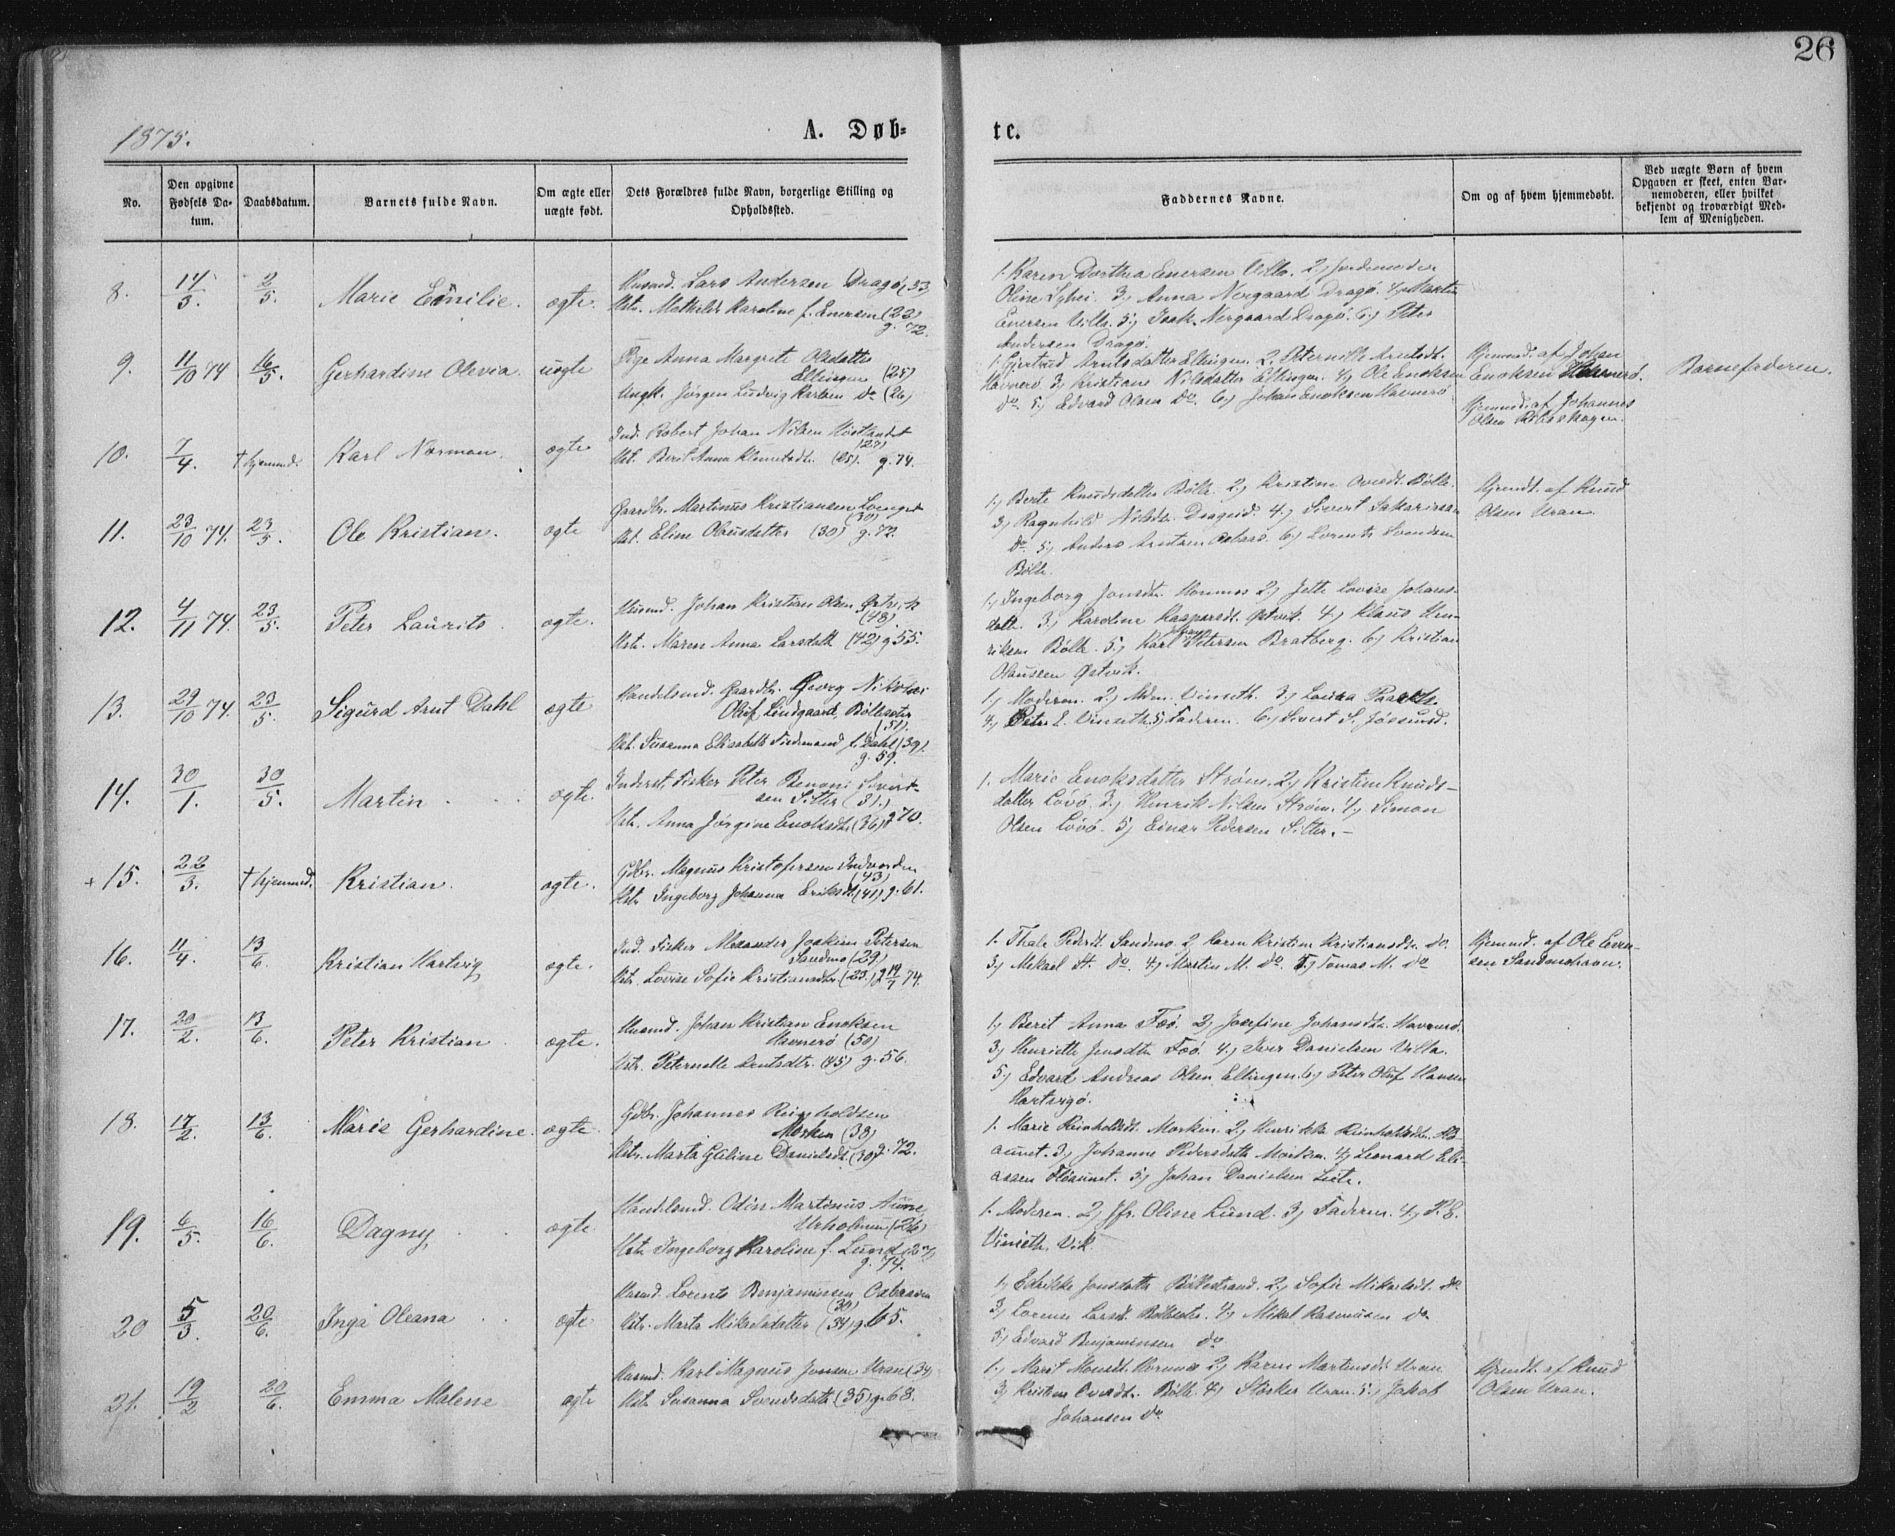 26
1875.
A. Døb-
te.
No.
Den opgivne Fødsels Da- tum.
Daabsdatum.
Barnets fulde Navn.
Om ægte eller uægte født.
Dets Forældres fulde Navn, borgerlige Stilling og Opholdssted.
Faddernes Navne.
Om og af hvem hjemmedøbt.
Ved uægte Børn af hvem Opgaven er skeet, enten Bar- nemoderen, eller hvilket bekjendt og troværdigt Med- lem af Menigheden.
8. 14/3. 2/5. Marie Emilie. ægte.
Husmd. Lars Andersen Dragø (33)
Hst. Mathilde Karoline f. Enersen (23)
g. 72.
1. Karen Dorthea Enersen Villa. 2, Jordemoder
Oline 3, Anna Nergaard Dragø. 4, Martin
Enersen Villa. 5, Isak Nergaard Dragø. 6, Peter
Andersen Dragø.
9. 11/10 74 16/5. Gerhardine Olevia. uægte
Pige Anna Margrete Olsdatter
Ellingen (25)
Ungk. Jørgen Ludvig Karlsen do (26)
1. Gjertrud Arntsdatter Ellingen. 2. Peternille Arntsdt.
Havnerø 3, Kristiane Nilsdatter Ellingen. 4, Ole Enoksen
do. 5, Edvard Olsen do. 6, Johan Enoksen Havnerø
Hjemmd. af Johan
Enoksen Havnerø.
Barnefaderen.
10. 7/4. † hjemmd. Karl Norman. ægte
Ind. Robert Johan Nilsen
(27)
Hst. Berit Anna (25). g. 74.
Hjemmd. af Johannes
Olsen
11. 23/10 74. 23/5. Ole Kristian. ægte
Gaardbr. Martinus Kristiansen
(30)
Hst. Eline Olausdatter (30) g. 72.
1, Berte Knudsdatter Bølle. 2, Kristine Ovedt. Bølle.
3, Ragnhild Nilsdt. Drageid. 4, Sivert Sakariasen
do. 5, Anders Arntsen 6, Lorents Svendsen
Bølle.
Hjemdt. af Knud
Olsen Uran.
12. 4/11 74. 23/5. Peter Laurits. ægte.
Husmd. Johan Kristian Olsen Østvik
(48).
Hst. Maren Anna Larsdatt (42) g 55.
1, Ingeborg Jonsdt. 2, Jette Lovise Johans-
datt. 3, Karoline Kaspersdt. Østvik. 4, Klaus Hen-
riksen Bølle. 5, Karl Petersen Bratberg. 6, Kristian
Olaussen Østvik.
13. 29/10 74. 23/5. Sigurd Arnt Dahl ægte
Handelsmd. Gaardbr. Georg Nikolai
Oluf Lindgaard, Bølleseter
(51).
Hst. Susanna Elisabeth Tidemand f. Dahl (39).
g. 59.
1, Moderen. 2, Mdm. Vinseth. 3, Lovisa
4, Petr. E. Vinseth. 5, Faderen. 6, Sivert S. Jøssund.
14. 30/1. 30/5. Martin. ægte.
Inderst, Fisker Peter Benoni Sivert-
sen Sitter (31.)
Hst. Anna Jørgine Enoksdt. (36), g 70.
1. Marie Enoksdatter Strøm. 2, Kristen Knuds-
datter Løvø. 3, Henrik Nilsen Strøm. 4, Simon
Olsen Løvø. 5, Einar Pedersen Sitter.-
+ 15. 22/3. † hjemmd. Kristian. ægte.
Gdbr. Magnus Kristofersen Indvorden
(43)
Hst. Ingeborg Johanna Eriksdt (41) g. 61.
16. 4/4. 13/6. Kristian Hartvig ægte.
Ind. Fisker Alexander Joakim Petersen
Sandmo (29)
Hst. Lovise Sofie Kristiansdtr (23.) g 19/7 74.
1. Thale Pedersdt. Sandmo. 2, Karen Kristine Kristiansdt. do.
3, Mekael St. do. 4, Martin M. do. 5, Tomas M. do
Hjemmd. af Ole Even-
sen Sandmohavn.
17. 20/2. 13/6. Peter Kristian. ægte.
Husmd. Johan Kristian Enoksen
Havnerø (50)
Hst. Peternelle Arntsdtr. (45) g. 56.
1, Berit Anna Føø. 2, Josefine Johansdt. Havnerø.
3, Henriette Jensdt. Føø. 4, Iver Danielsen Villa.
5, Edvard Andreas Olsen Ellingen. 6, Peter Oluf Hansen
18. 17/2. 13/6. Marie Gerhardine. ægte.
Gdbr. Johannes Reinholdsen
Morken (38)
Hst. Marta Eline Danielsdt. (30) g. 72.
1. Marie Reinholdsdt. Morken. 2, Henrikke Reinholdsdt. Flø-
aunet. 3, Johanne Pedersdatter Morken. 4, Leonard Eli-
assen Fløaunet. 5, Johan Danielsen
19. 6/5. 16/6. Dagny. ægte
Handelsmd. Odin Martinus Aune,
Utholmen (26)
Hst. Ingeborg Karoline f. Lund (27)
g. 74.
1. Moderen. 2, Jfr. Oline Lund. 3, Faderen. 4, P. E.
Vinseth, Vik.
20 5/3. 20/6. Inga Oleana ægte
Husmd. Lorents Benjaminsen
(39)
Hst. Marta Mikaelsdatter (34) g 65.
1, Edrikke Jonsdatt. Bøllestrand. 2, Sofie Mikaelsdt. do
3, Lorense Larsdt. Bølleseter. 4, Mikal Rasmussen do
5, Edvard Benjaminsen do
21. 19/2 20/6. Emma Malene ægte
Husmd. Karl Magnus Jensen Uran (34)
Hst. Susanna Svendsdatt (35) g. 68.
1, Marit 2, Karen Martinsdt Uran
3, Kristine Ovedt. Bølle. 4, Uran. 5, Jakob
Johansen do
Hjemdt. af Knud
Olsen Uran.